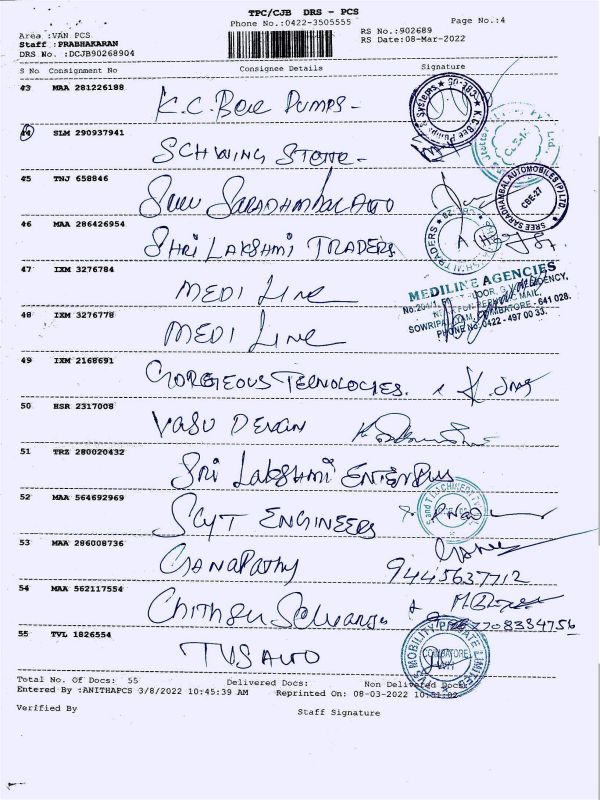 TPC/CJB DRS - PCS
Phone No.:0422-3505555
Page No.:4
Area :VAN PCS
RS No.:902689
Staff :PRABHAKARAN
RS Date:08-Mar-2022
DRS No. :DCJB90268904
S No Consignment No Consignee Details Signature
43 MAA 281226188 K.C. Bee Pumps-
K.C.Bee Pumps & Systems
CBE-06
44 SLM 290937941 SCHWING STETTE-
45 TNJ 658846 SREE SARADHAMBAL AUTO
SREE SARADHAMBAL AUTOMOBILES (P) LTD.
CBE-27
46 MAA 286426954 SHRI LAKSHMI TRADERS
47 IXM 3276784 MEDI Line
MEDILINE AGENCIES
COIMBATORE - 641 028.
PHONE No:0422 - 497 00 33.
48 IXM 3276778 MEDI Line
49 IXM 2168691 GORGEOUS TECNOLOGIES.
50 HSR 2317008 VASU DEVAN
51 TRZ 280020432 Sri Lakshmi Enterprises
52 MAA 564692969 Scyt ENGINEERS
53 MAA 286008736 GANAPATHY
9445637712
54 MAA 562117554 Chithra Selvaraj
7708334756
55 TVL 1826554 TVS AUTO
TVS MOBILITY PRIVATE LIMITED
COIMBATORE
Total No. Of Docs: 55 Delivered Docs: Non Delivered Docs:
Entered By :ANITHAPCS 3/8/2022 10:45:39 AM Reprinted On: 08-03-2022 10:51:02
Verified By Staff Signature